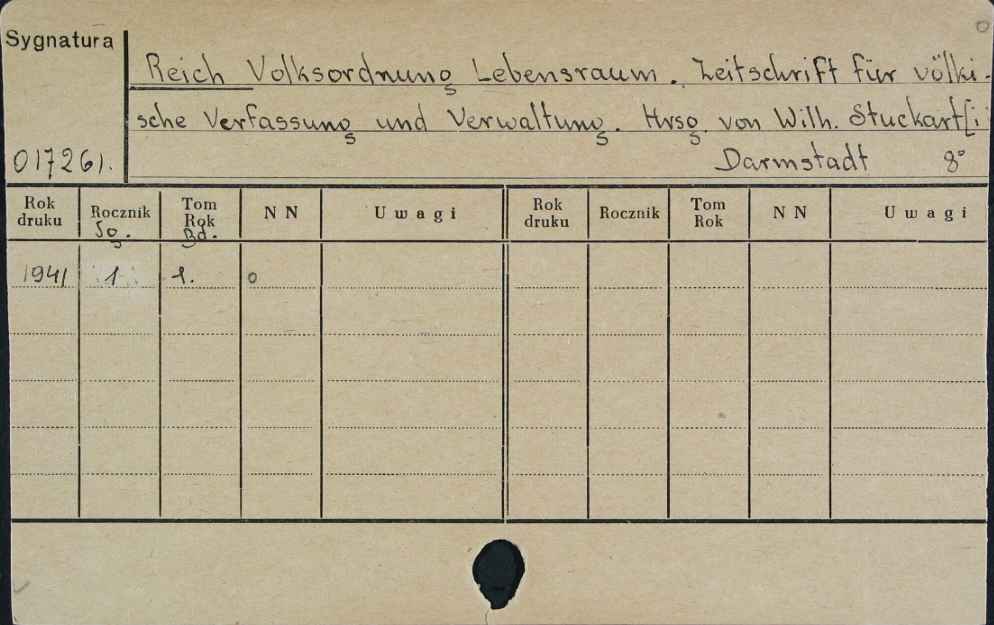 Sygnatura
Reich Volksordnung Lebensraum. Zeitschrift für völki-
sche Verfassung und Verwaltung. Hrsg. von Wilh. Stuckart [i
017261. Darmstadt 8°
Rok druku Rocznik Tom Rok NN Uwagi Rok druku Rocznik Tom Rok NN Uwagi
Jg. Bd.
1941 1 1. 0